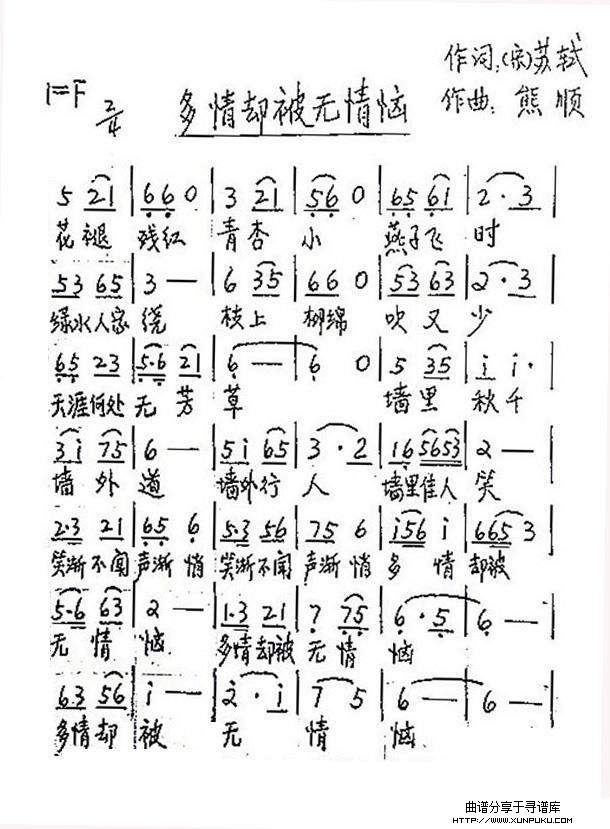 作词:(宋)苏轼
1=F 2/4 多情却被无情恼 作曲:熊顺
5 21 | 660 | 3 21 | 560 | 65 61 | 2·3 |
花褪 残红 青杏 小 燕子飞 时
53 65 | 3 — | 6 35 | 660 | 53 63 | 2·3 |
绿水人家 绕 枝上 柳绵 吹又 少
65 23 | 5·6 21 | 6 — | 6 0 | 5 35 | i i· |
天涯何处 无芳 草 墙里 秋千
3i 75 | 6 — | 5i 65 | 3·2 | 16 5653 | 2 — |
墙外 道 墙外行 人 墙里佳人 笑
2·3 21 | 65 6 | 5·3 56 | 75 6 | i56 i | 665 3 |
笑渐不闻 声渐悄 笑渐不闻 声渐悄 多情 却被
5·6 63 | 2 — | 1·3 21 | 7 75 | 6·5 | 6 — |
无情 恼 多情却被 无情 恼
6·3 56 | i — | 2·i | 7 5 | 6 — | 6 — |
多情却 被 无 情 恼
曲谱分享于寻谱库
HTTP://WWW.XUNPUKU.COM